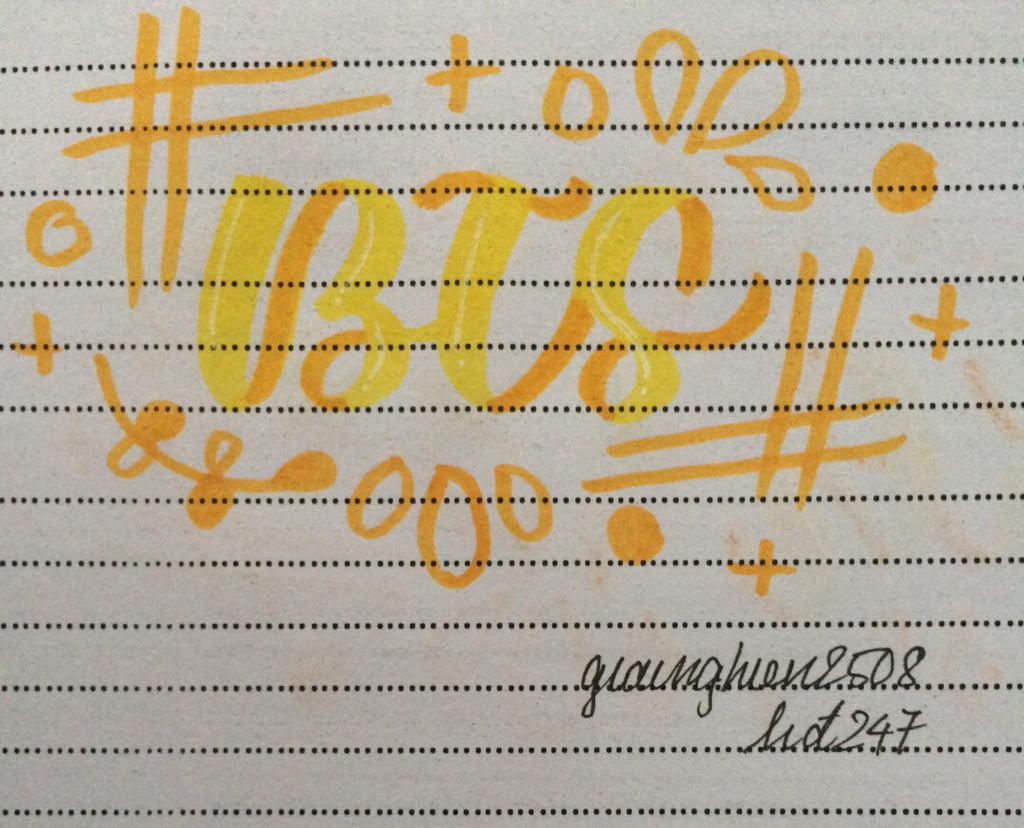 BTS
gianghien2508
hđ247